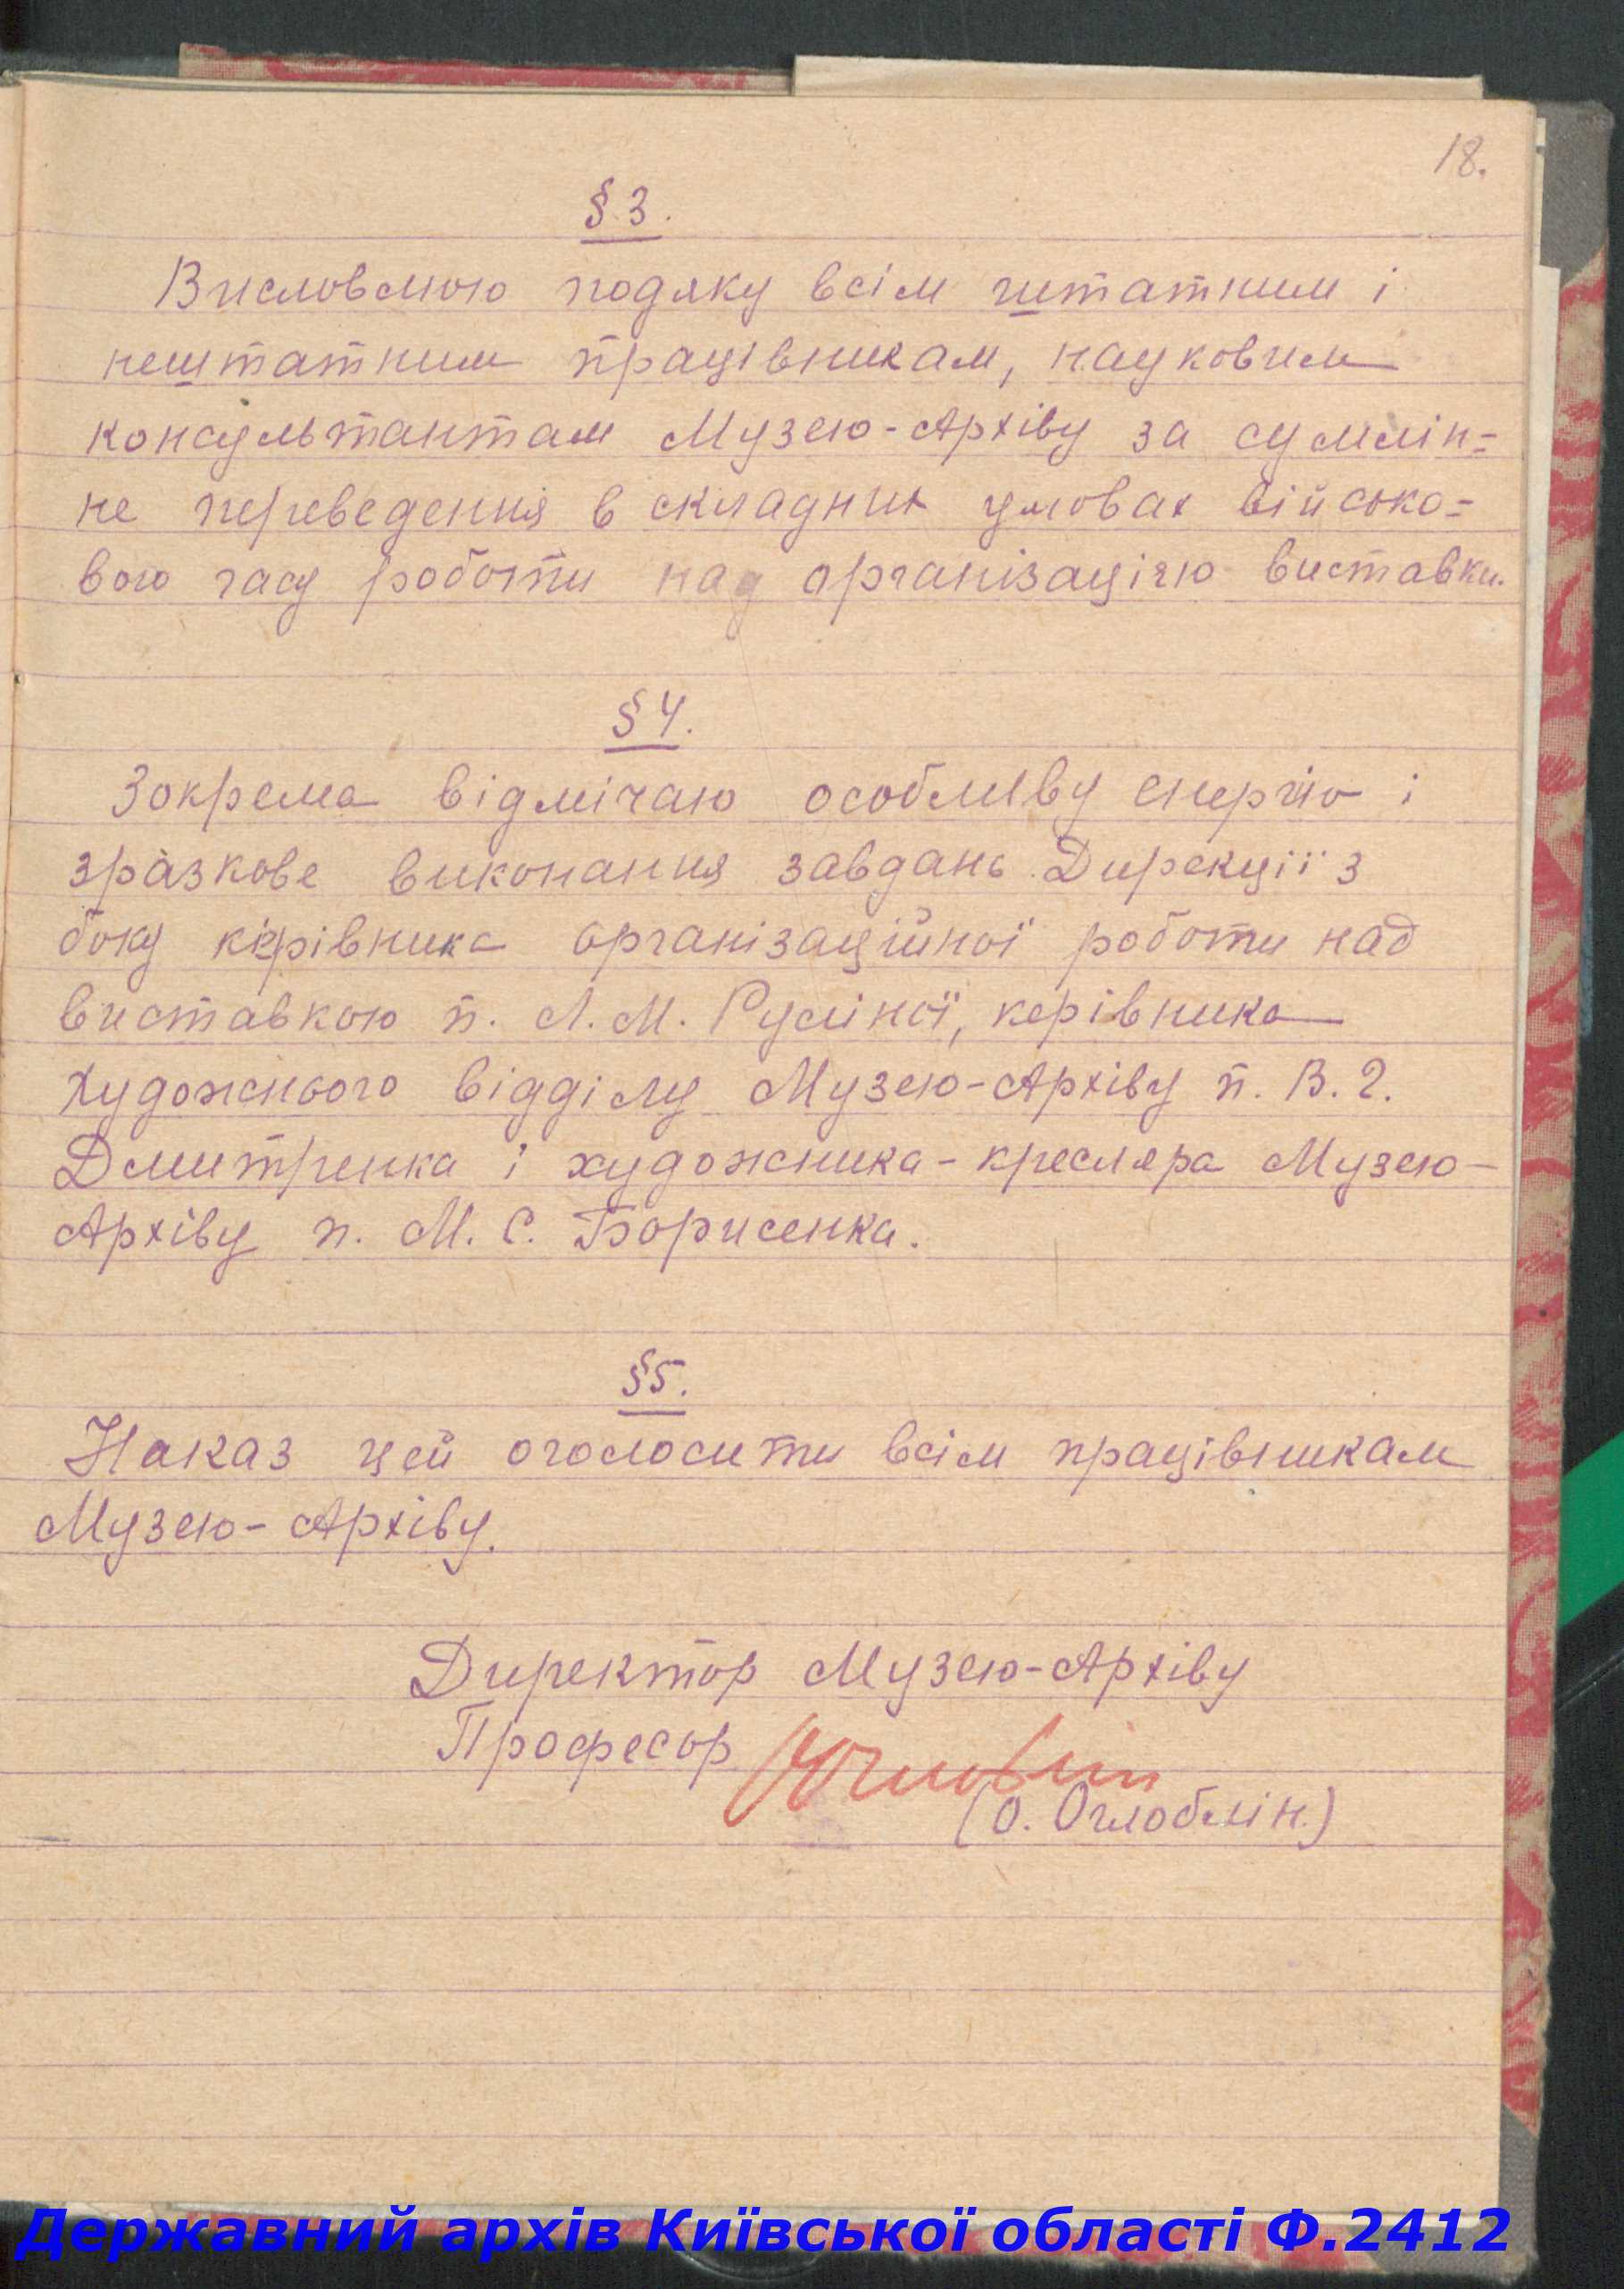 18.
§ 3.
Висловлюю подяку всім штатним і
нештатним працівникам, науковим
консультантам Музею-Архіву за сумлін=
не переведення в складних умовах військо=
вого часу роботи над організацією виставки.
§ 4.
Зокрема відмічаю особливу енергію і
зразкове виконання завдань Дирекції з
боку керівника організаційної роботи над
виставкою п. Л. М. Руліної, керівника
художнього відділу Музею-Архіву п. В. Г.
Дмитренка і художника-кресляра Музею-
Архіву п. М. С. Борисенка.
§5.
Наказ цей оголосити всім працівникам
Музею-Архіву.
Директор Музею-Архіву
Професор
(О. Оглоблін)
Державний архів Київської області Ф.2412